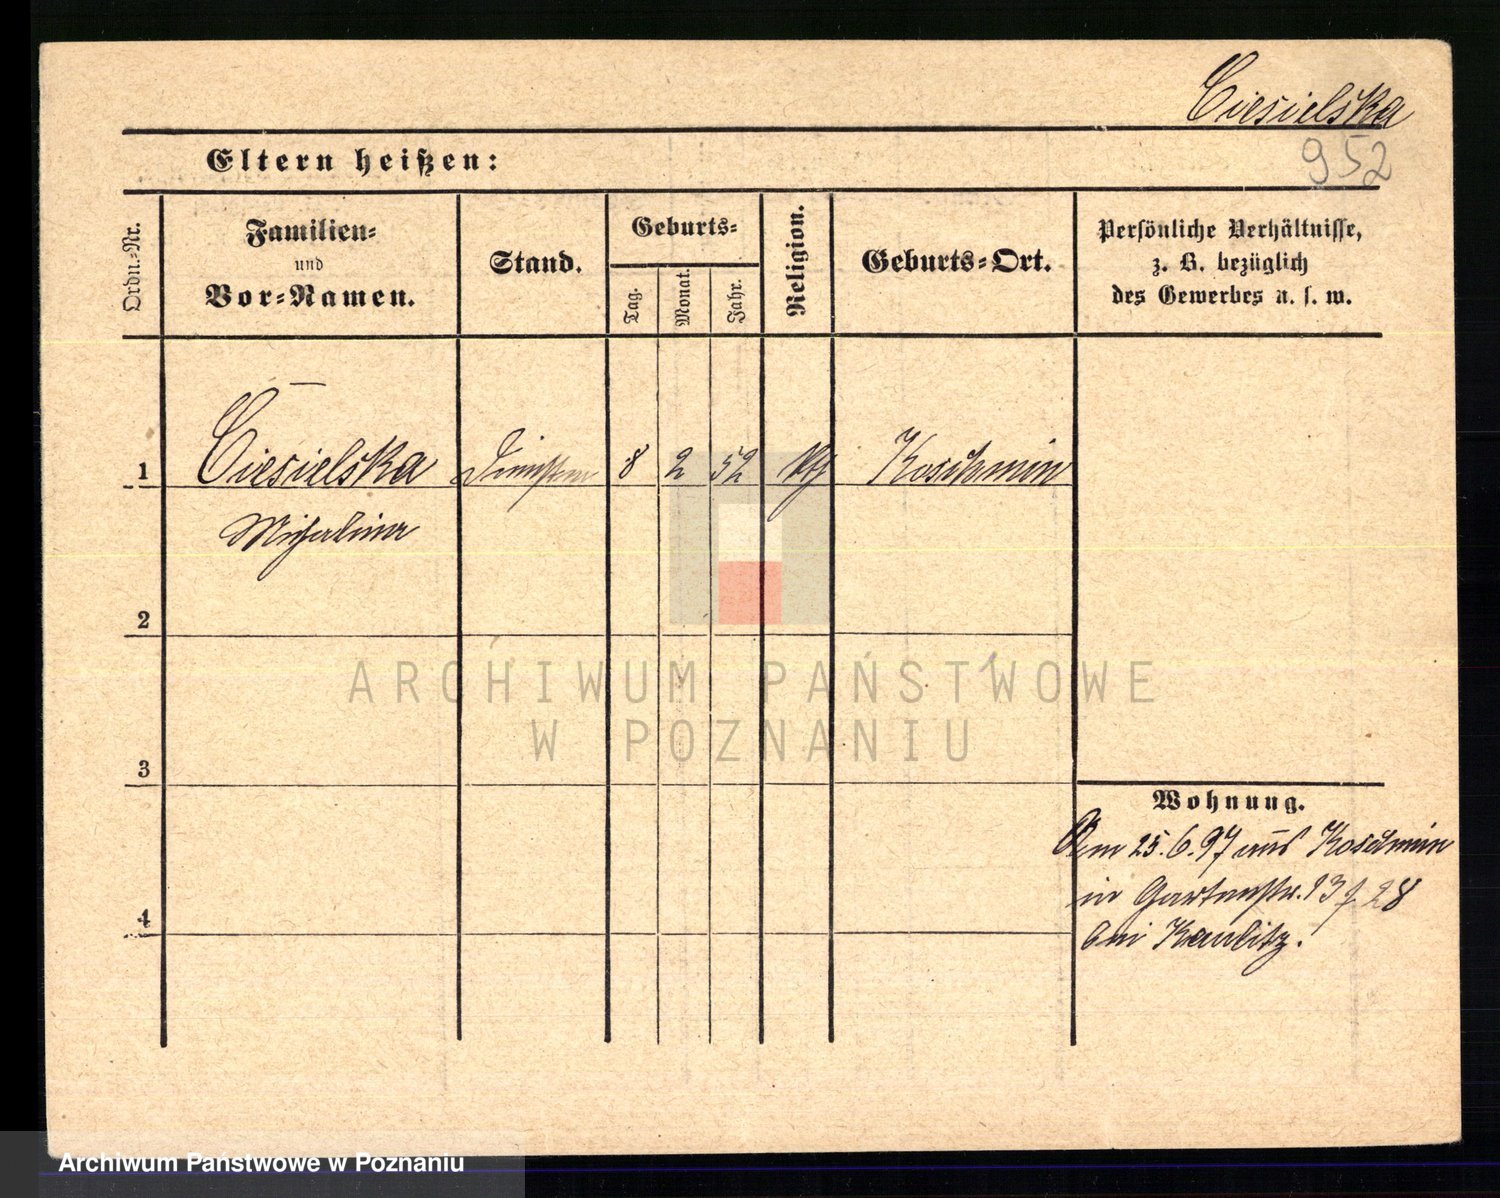 Ciesielska
Eltern heißen:
952
Ordn.-Nr.
Familien-
und
Vor-Namen.
Stand.
Geburts-
Tag.
Monat.
Jahr.
Religion.
Geburts-Ort.
Persönliche Verhältnisse,
z. B. bezüglich
des Gewerbes u. s. w.
1
Ciesielska 8 2 52 Koschmin
Michalina
2
3
4
Wohnung.
Am 25.6.97 aus Koschmin
in Gartenstr. 13 28
bei Kaulitz.
ARCHIWUM PAŃSTWOWE
W POZNANIU
Archiwum Państwowe w Poznaniu